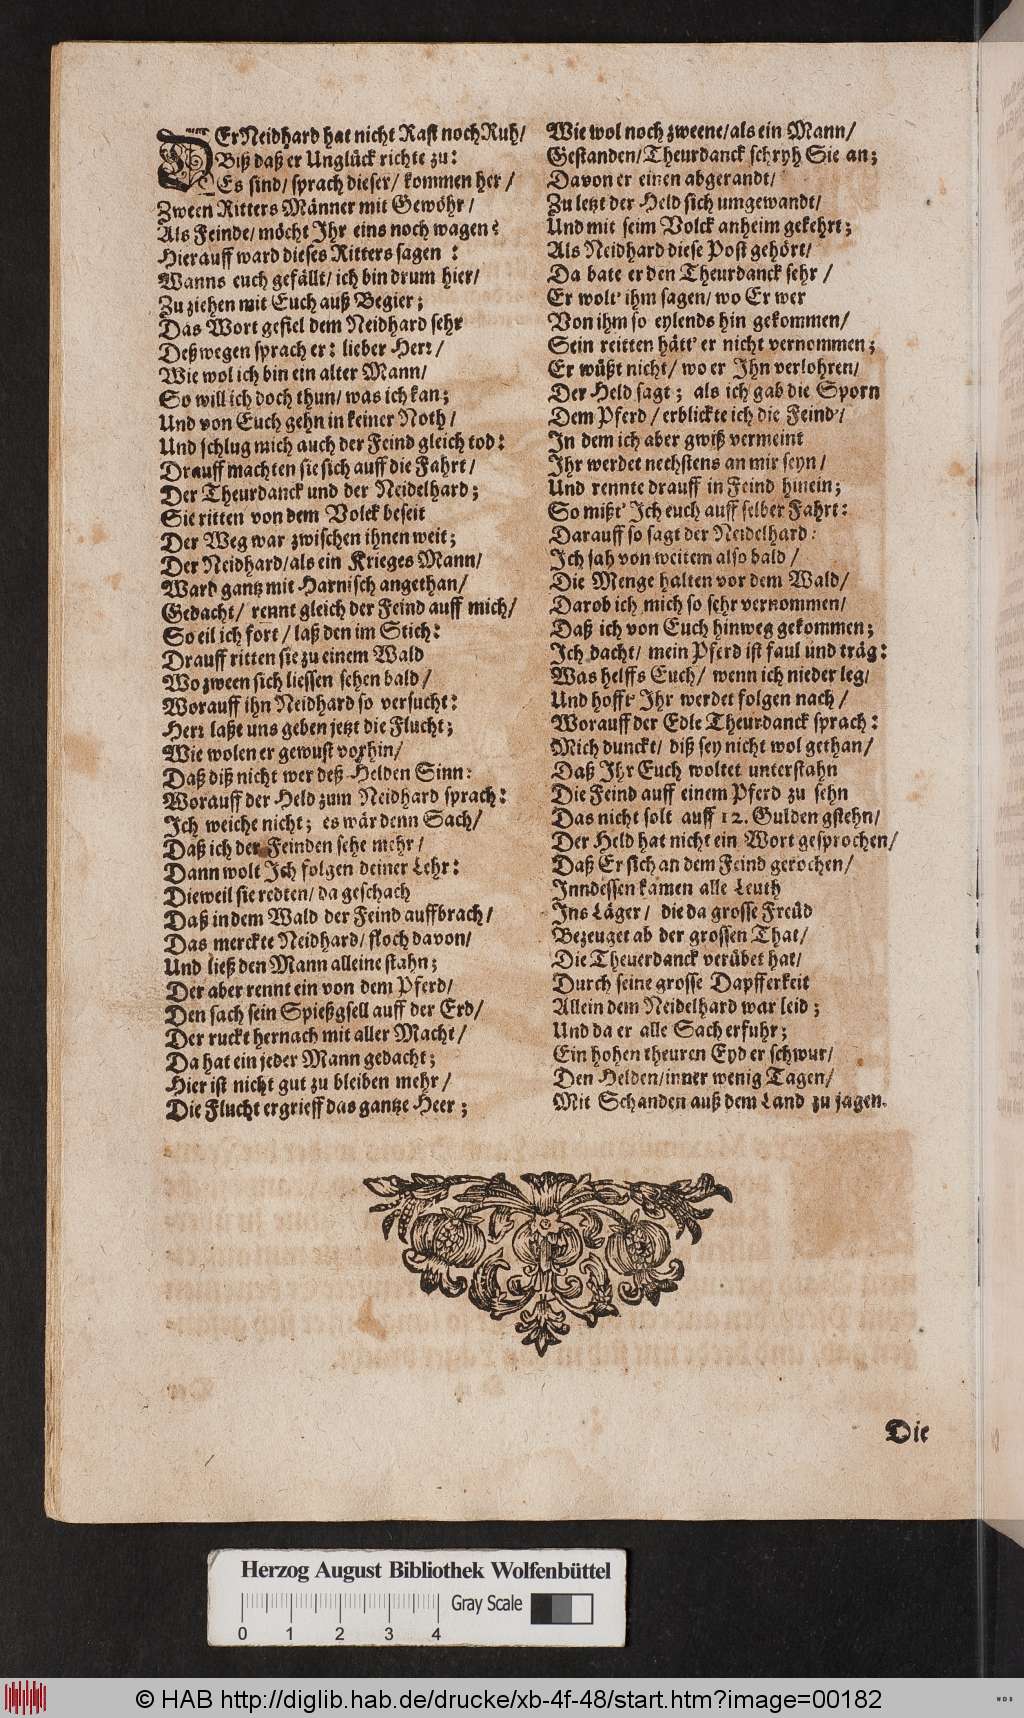 DEr Neidhard hat nicht Rast noch Ruh/
Biß daß er Unglück richte zu:
Es sind/ sprach dieser/ kommen her/
Zween Ritters Männer mit Gewöhr/
Als Feinde/ möcht Ihr eins noch wagen?
Hierauff ward dieses Ritters sagen:
Wanns euch gefällt/ ich bin drum hier/
Zu ziehen mit Euch auß Begier;
Das Wort gefiel dem Neidhard sehr
Deßwegen sprach er: lieber Herr/
Wie wol ich bin ein alter Mann/
So will ich doch thun/ was ich kan;
Und von Euch gehn in keiner Noth/
Und schlug mich auch der Feind gleich tod:
Drauff machten sie sich auff die Fahrt/
Der Theurdanck und der Neidelhard;
Sie ritten von dem Volck beseit
Der Weg war zwischen ihnen weit;
Der Neidhard/ als ein Krieges Mann/
Ward gantz mit Harnisch angethan/
Gedacht/ rennt gleich der Feind auff mich/
So eil ich fort/ laß den im Stich:
Drauff ritten sie zu einem Wald
Wo zween sich liessen sehen bald/
Worauff ihn Neidhard so versucht:
Herr laßt uns geben jetzt die Flucht;
Wie wolen er gewust vorhin/
Daß diß nicht wer deß Helden Sinn:
Worauff der Held zum Neidhard sprach:
Ich weiche nicht; es wär denn Sach/
Daß ich der Feinden sehe mehr/
Dann wolt Ich folgen deiner Lehr:
Dieweil sie redten/ da geschach
Daß in dem Wald der Feind auffbrach/
Das merckte Neidhard/ floch davon/
Und ließ den Mann alleine stahn;
Der aber rennt ein von dem Pferd/
Den sach sein Spießgsell auff der Erd/
Der ruckt hernach mit aller Macht/
Da hat ein jeder Mann gedacht;
Hier ist nicht gut zu bleiben mehr/
Die Flucht ergrieff das gantze Heer;
Wie wol noch zweene/ als ein Mann/
Gestanden/ Theurdanck schryh Sie an;
Davon er einen abgerandt/
Zu letzt der Held sich umgewandt/
Und mit seim Volck anheim gekehrt;
Als Neidhard diese Post gehört/
Da bate er den Theurdanck sehr/
Er wolt' ihm sagen/ wo Er wer
Von ihm so eylends hin gekommen/
Sein reitten hätt' er nicht vernommen;
Er wüßt nicht/ wo er Ihn verlohren/
Der Held sagt; als ich gab die Sporn
Dem Pferd/ erblickte ich die Feind'/
In dem ich aber gwiß vermeint
Ihr werdet nechstens an mir seyn/
Und rennte drauff in Feind hinein;
So mißt' Ich euch auff selber Fahrt:
Darauff so sagt der Neidelhard:
Ich sah von weitem also bald/
Die Menge halten vor dem Wald/
Darob ich mich so sehr vernommen/
Daß ich von Euch hinweg gekommen;
Ich dacht/ mein Pferd ist faul und träg:
Was helffs Euch/ wenn ich nieder leg/
Und hofft' Ihr werdet folgen nach/
Worauff der Edle Theurdanck sprach:
Mich dunckt/ diß sey nicht wol gethan/
Daß Ihr Euch woltet unterstahn
Die Feind auff einem Pferd zu sehn
Das nicht solt auff 12. Gulden gstehn/
Der Held hat nicht ein Wort gesprochen/
Daß Er sich an dem Feind gerochen/
Inndessen kamen alle Leuth
Ins Läger/ die da grosse Freüd
Bezeuget ab der grossen That/
Die Theuerdanck verübet hat/
Durch seine grosse Dapfferkeit
Allein dem Neidelhard war leid;
Und da er alle Sach erfuhr;
Ein hohen theuren Eyd er schwur/
Den Helden/ inner wenig Tagen/
Mit Schanden auß dem Land zu jagen.
Die
Herzog August Bibliothek Wolfenbüttel
Gray Scale
0 1 2 3 4
© HAB http://diglib.hab.de/drucke/xb-4f-48/start.htm?image=00182